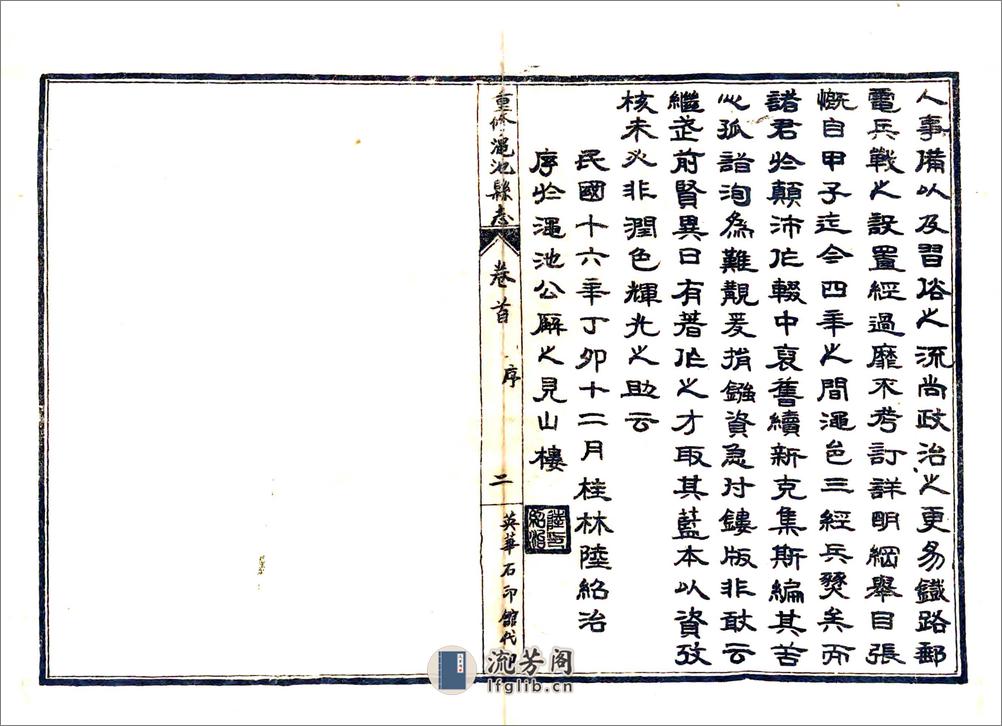 人事備以及習俗之流尚政治之更易鐵路郵
電兵戰之設置經過靡不考訂詳明綱舉目張
慨自甲子迄今四年之間澠邑三經兵燹矣而
諸君於顛沛作輟中裒舊續新克集斯編其苦
心孤詣洵為難覯爰捐鏹資急付鏤版非敢云
繼武前賢異日有著作之才取其藍本以資攷
核未必非潤色輝光之助云
民國十六年丁卯十二月桂林陸紹治
序於澠池公廨之見山樓
陸印紹治
重修澠池縣志
卷首
序
二
英華石印館代印
流芳阁
lfglib.cn